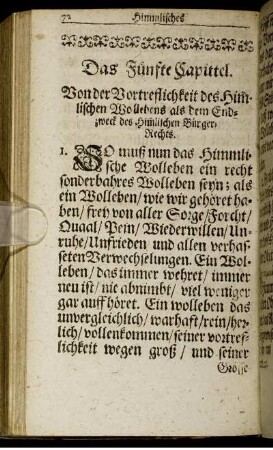 72 Himmlisches
Das Fünfte Capittel.
Von der Vortreflichkeit des Him̃-
lischen Wollebens als dem End-
zweck des Him̃lischen Bürger-
Rechts.
1. SO muß nun das Himmli-
sche Wolleben ein recht
sonderbahres Wolleben seyn; als
ein Wolleben/ wie wir gehöret ha-
ben/ frey von aller Sorge/ Forcht/
Quaal/ Pein/ Wiederwillen/ Un-
ruhe/ Unfrieden und allen verhas-
seten Verwechselungen. Ein Wol-
leben/ das immer wehret/ immer
neu ist/ nie abnimbt/ viel weniger
gar auff höret. Ein wolleben das
unvergleichlich/ warhaft/ rein/ her-
lich/ vollenkommen/ seiner vortref-
lichkeit wegen groß/ und seiner
Grösse